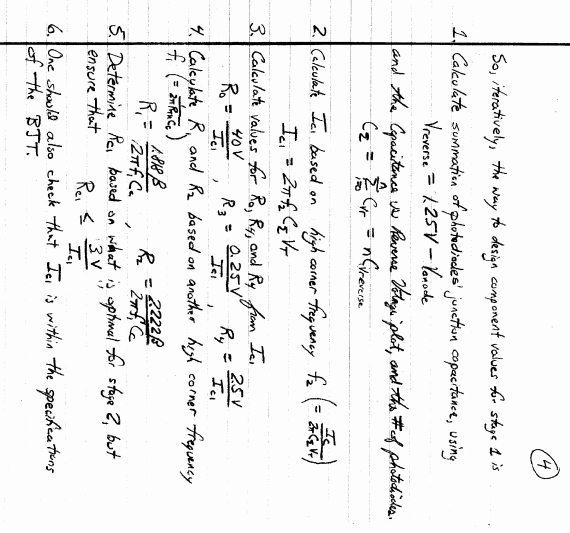 4
So, iteratively, the way to design component values for stage 1 is
1. Calculate summation of photodiodes' junction capacitance, using
Vreverse = 1.25V - Vanode
and the Capacitance vs Reverse Voltage plot, and the # of photodiodes.
CΣ = Σ Cr = n Cr,reverse
2. Calculate Ic1 based on high corner frequency f2 (= Ic/2πCΣVT)
Ic1 = 2πf2 CΣ VT
3. Calculate values for R0, R3, and R4 from Ic1
R0 = 40V/Ic1 , R3 = 0.25V/Ic1 , R4 = 2.5V/Ic1
4. Calculate R1 and R2 based on another high corner frequency
f1 (= 1/2πRinCc)
R1 = 1.818β/2πf1Cc R2 = 2.222β/2πf1Cc
5. Determine Rc1 based on what is optimal for stage 2, but
ensure that
Rc1 ≤ 3V/Ic1
6. One should also check that Ic1 is within the specifications
of the BJT.